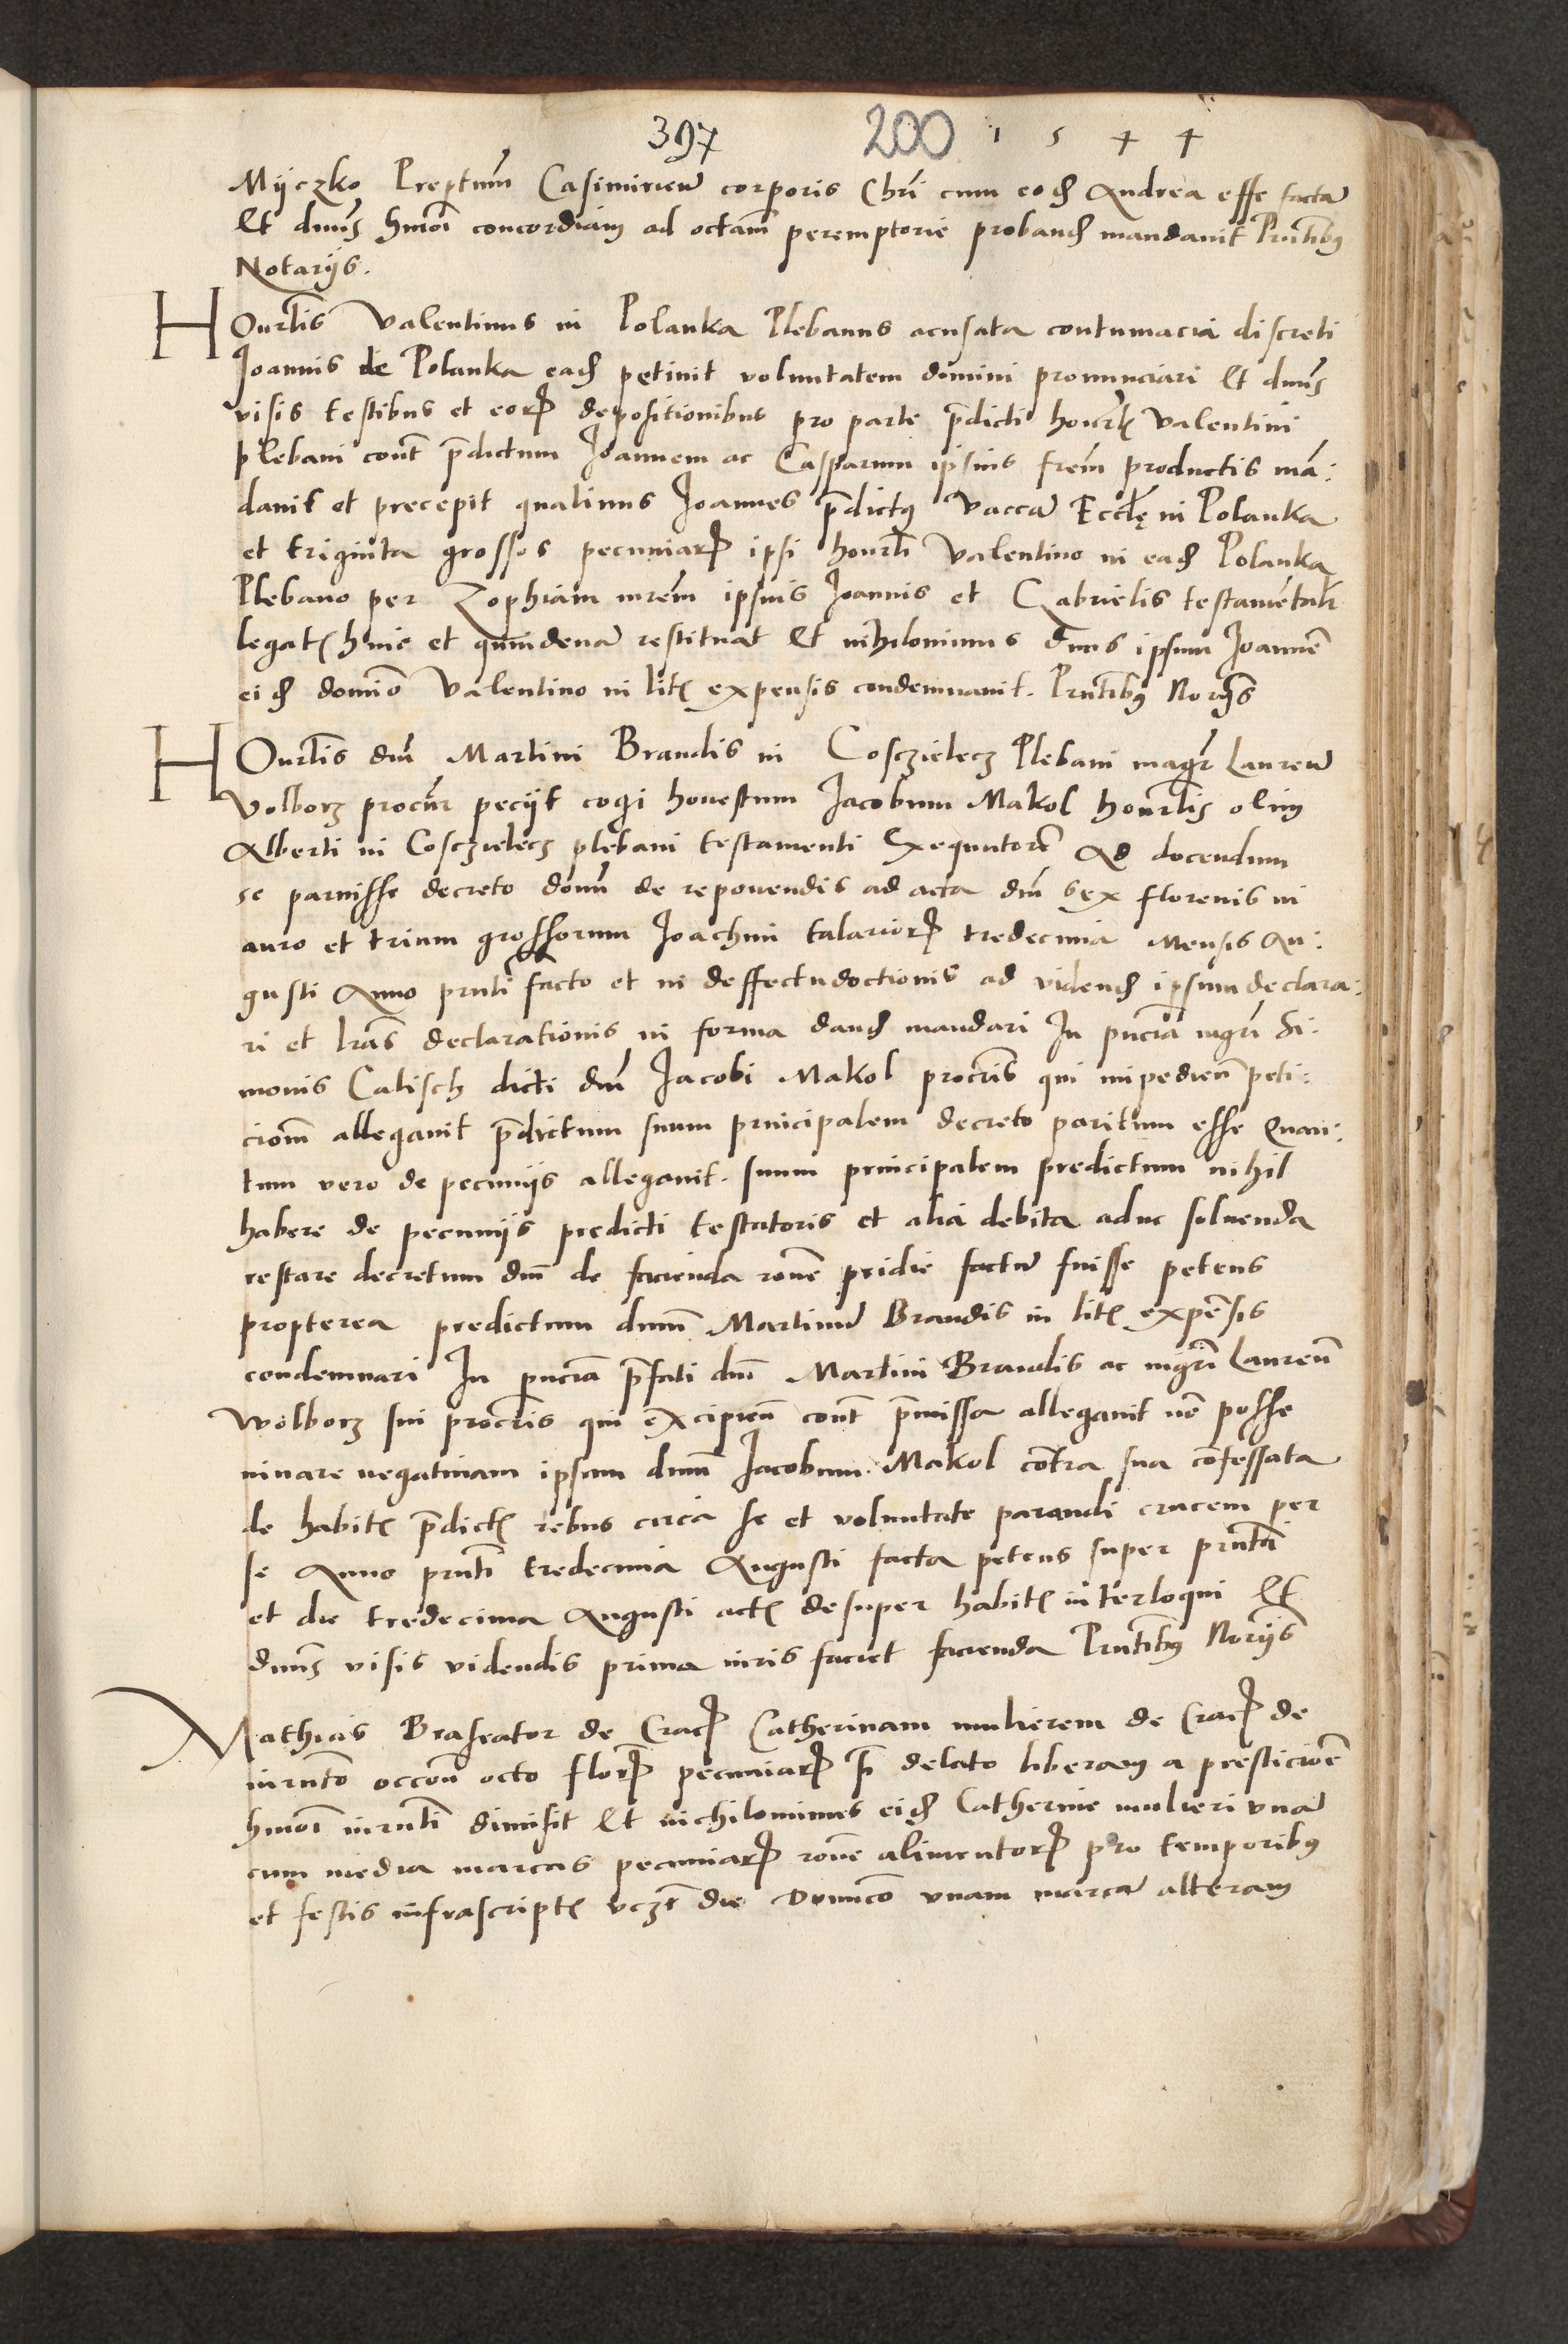 397 200 1 5 4 4
Mijczko Prepᵗum̃ Casimirien̄ corporis Chri cum eod Andrea esse factā
Et dn̄us hm̄oi concordiam ad octam̄ peremptorie proband mandauit Pn̄tibus
Notarijs.
Honrl̃is Valentinus in Polanka Plebanus acusata contumacia discreti
Joannis de Polanka ead petiuit voluntatem domini pronunciari Et dn̄us
visis testibus et eor depositionibus pro parte p̄dicti honrl̃ Valentini
plebani cont̃ p̄dictum Joannem ac Casparum ipsius fr̄em productis mā:
dauit et precepit quatinus Joannes p̄dictus vaccā Eccl̃ę in Polanka
et triginta grossos pecuniar ipsi honrl̃i Valentino in ead Polanka
Plebano per Zophiam mr̄em ipsius Joannis et Gabrielis testamental̃r
legat hinc et quindenā restituat Et nihilominus dn̄us ipsum Joannē
eid domīo Valentino in lit expensis condemnauit. Pn̄tibus Nor̄ijs
Honrl̃is dn̄i Martini Brandis in Cosczielecz Plebani magr̄ Lauren̄
Volborz procur̄ pecijt cogi honestum Jacobum Makol honrl̃is olim
Alberti in Cosczielecz plebani testamenti Exequutorē Ad docendum
se paruisse decreto domī de reponendis ad acta dn̄i sex florenis in
auro et trium grossorum Joachim talarior tredecima Mensis Au:
gusti Anno pn̄ti facto et in deffectu doctionis ad vidend ipsum declara:
ri et lr̄as declarationis in forma dand mandari In pn̄cia mgr̄i Si:
monis Calisch dicti dn̄i Jacobi Makol procr̄is qui impedien̄ peti:
ciom̄ allegauit p̄dictum suum principalem decreto paritum esse Quan:
tum vero de pecunijs allegauit. suum principalem predictum nihil
habere de pecunijs predicti testatoris et alia debita aduc soluenda
restare decretum dn̄i de facienda rōne pridie factū fuisse petens
propterea predictum dn̄um Martinū Brandis in lit expēsis
condemnari In pn̄cia p̄fati dn̄i Martini Brandis ac mgr̄i Lauren̄
Wolborz sui procr̄is qui excipien̄ cont̃ p̄missa allegauit nō posse
iuuare negatiuam ipsum dn̄um Jacobum Makol contra sua confessata
de habit p̄dict rebus circa se et voluntate parandi crucem per
se Anno pn̄ti tredecima Augusti facta petens super pn̄ti
et die tredecima Augusti act desuper habit interloqui Et
dn̄us visis videndis prima iuris faciet facienda Pn̄tibus Nor̄ijs
Mathias Braseator de Crac Catherinam mulierem de Crac de
iurn̄to occōne octo flor pecuniar s̄i delato liberam a presticiōe
hm̄oi iurn̄ti dimisit Et nichilominus eid Catherine mulieri vnā
cum media marcas pecuniar rōne alimentor pro temporibus
et festis infrascript vcz̃t die Dominico vnam marcā alteram